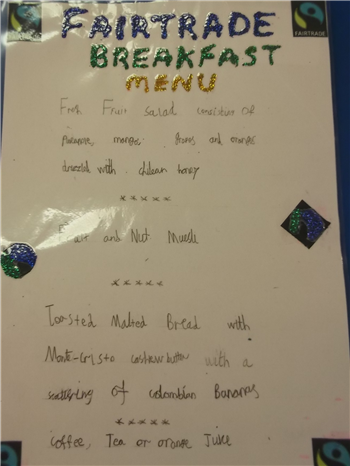 FAIRTRADE
FAIRTRADE
BREAKFAST
MENU
Fresh Fruit Salad consisting of
Pineapple, mangos, and orange
drizzled with chilean honey
*****
Fruit and Nut Muesli
*****
Toasted Malted Bread with
Monte-Cristo cashew butter with a
scattering of colombian Bananas
*****
Coffee, Tea or orange Juice